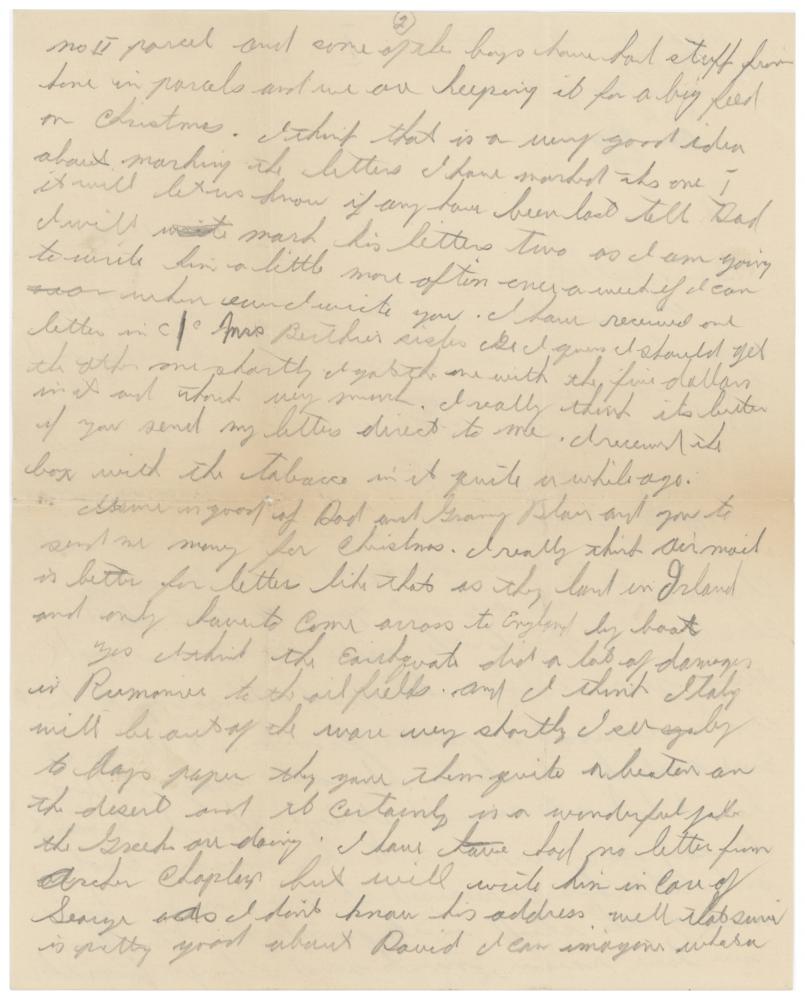 (2)
no II parcel and some of the boys have had stuff from
home in parcels and we are keeping it for a big feed
on Christmas. I think that is a very good idea
about marking the letters I have marked this one I
it will let us know if any have been lost tell Dad
I will mark his letters two as I am going
to write him a little more often once a week if I can
when ever I write you. I have received one
letter in c/o Mrs sister I guess I should get
the other one shortly I got the one with the five dollars
in it and thank very much. I really think its better
if you send my letters direct to me. I received the
box with the tabacco in it quite a while ago.
is good of Dad and Granny Blair and you to
send me money for Christmas. I really think air mail
is better for letter like that as they land in Irland
and only have to come across to England by boat
Yes I think the Earthquate did a lot of damages
in Rumania to the oil fields. and I think Italy
will be out of the ware very shortly I see by
to days paper they gave them quite a beaten on
the desert and it certainly is a wonderful job
the Greek are doing. I have had no letter from
Archer Chaplin but will write him in Care of
George as I don't know his address well that
is pretty good about David I can imagine what a